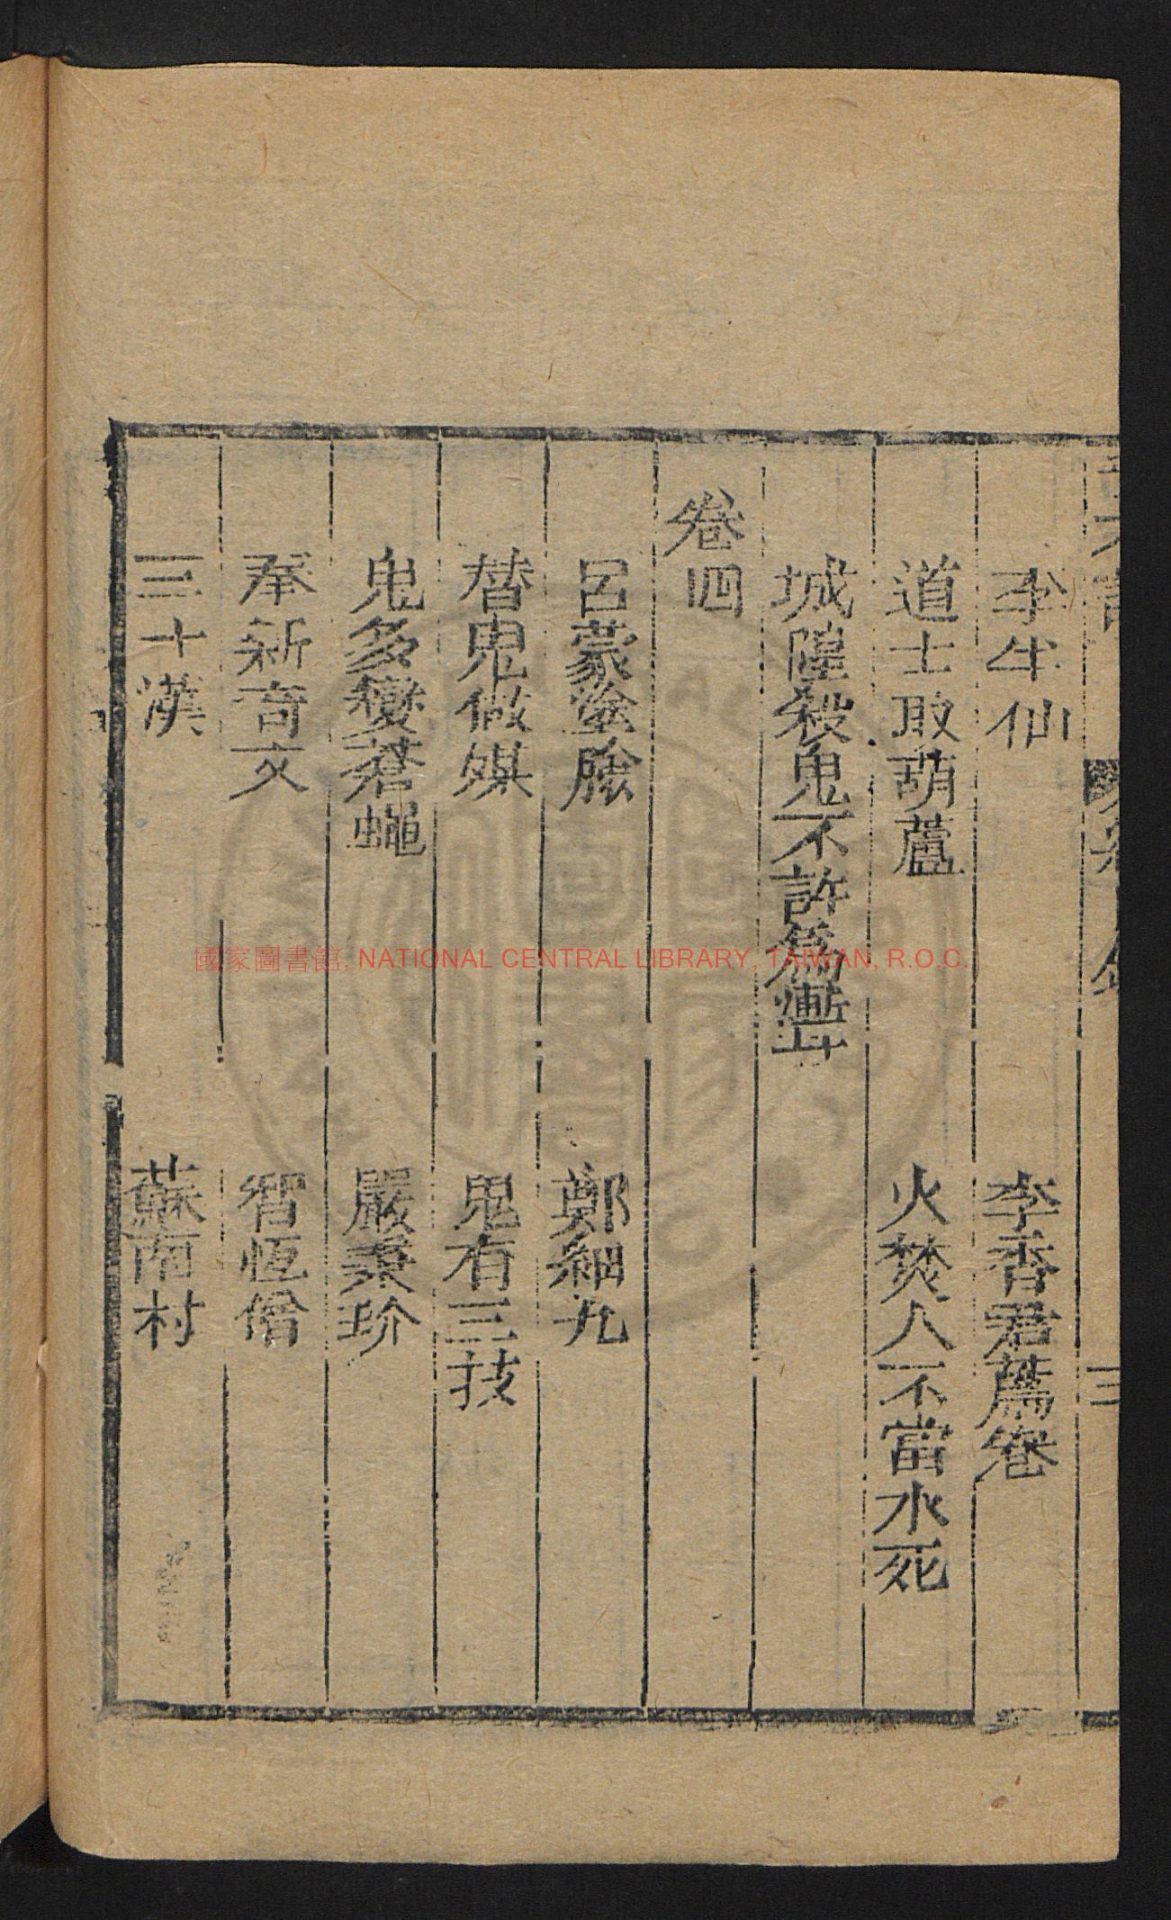 李半仙　李香君薦卷
道士取葫蘆　火焚人不當水死
城隍殺鬼不許爲聻
卷四
呂蒙塗臉　鄭細九
替鬼做媒　鬼有三技
鬼多變蒼蠅　嚴秉玠
奉新奇文　智恆僧
三斗漢　蘇南村
國家圖書館, NATIONAL CENTRAL LIBRARY, TAIWAN, R.O.C.